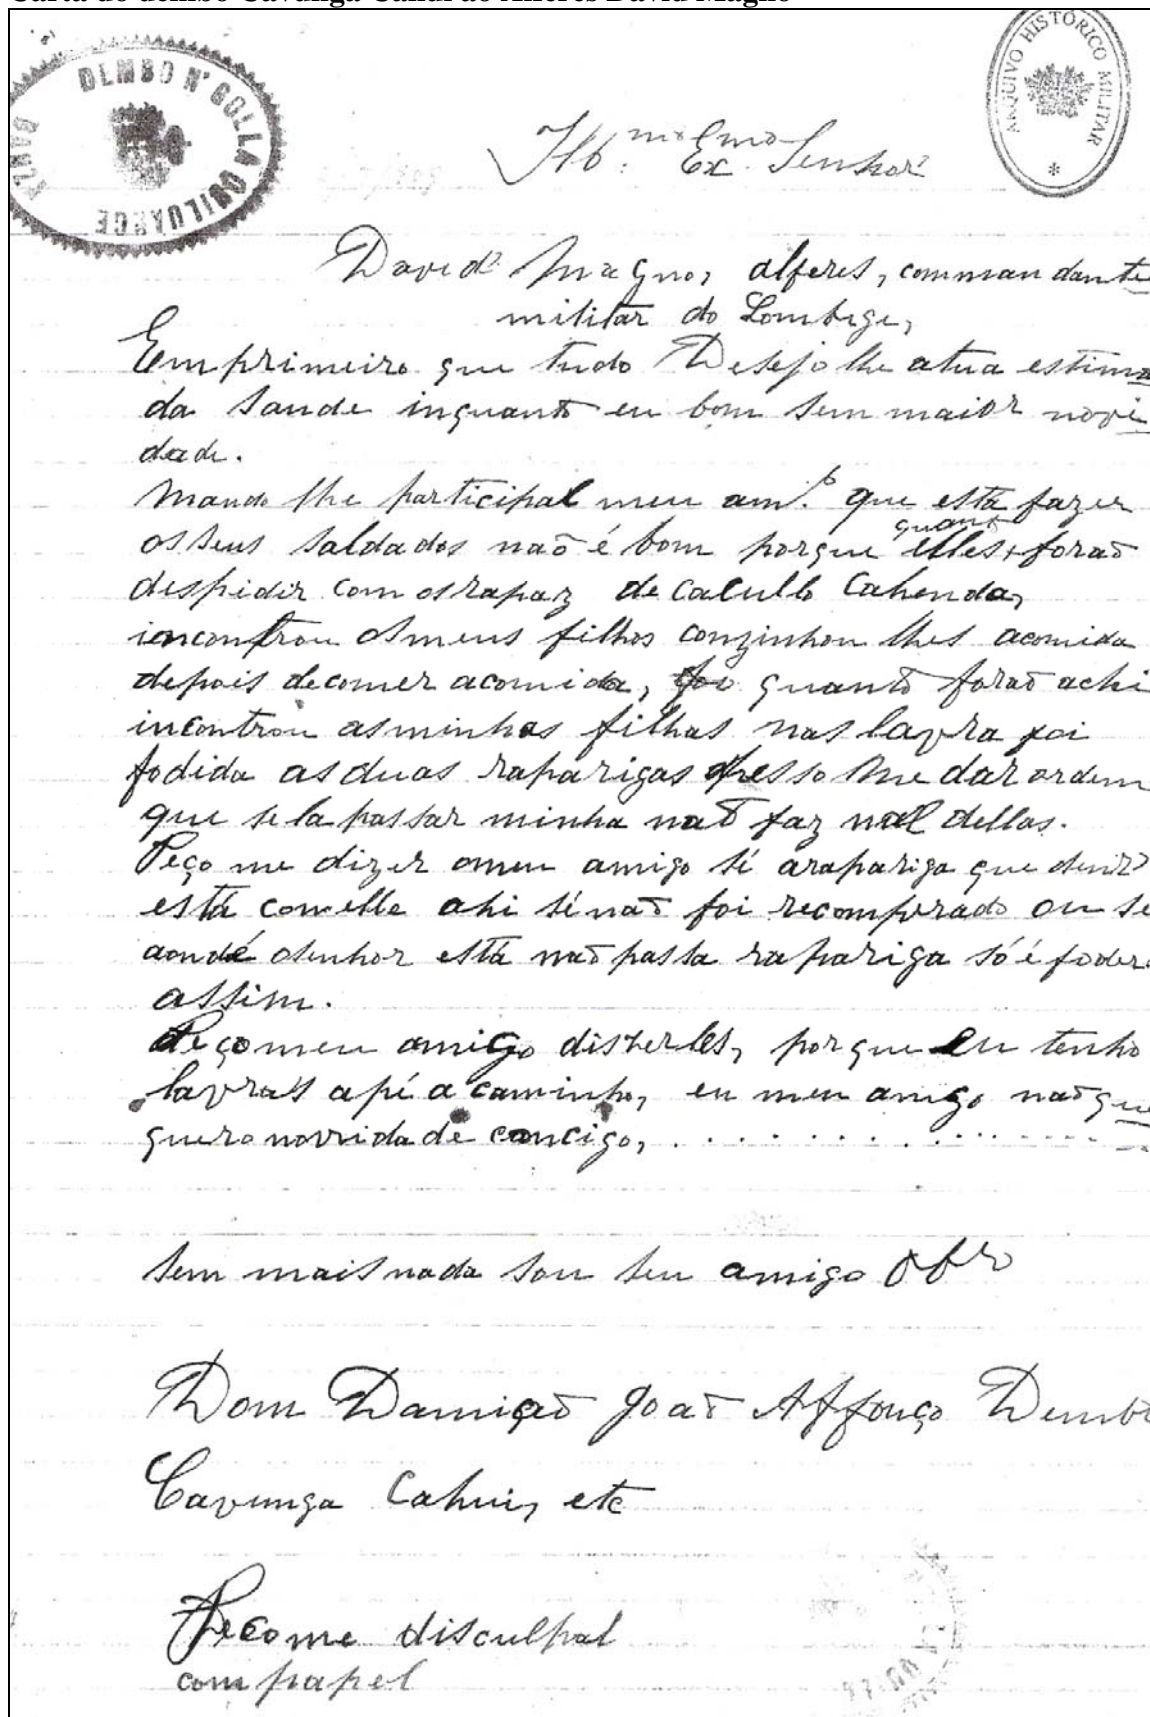 Carta do dembo Cavunga Cahui ao Alferes David Magno
DEMBO N' GOLLA QUILUANGE
ARQUIVO HISTÓRICO MILITAR
Ill.mo Ex.mo Senhor
David Magno, alferes, commandante
militar do Lombige,
Em primeiro que tudo Desejo lhe atua estima
da saude inquanto eu bom sem maior novi
dade.
Mando lhe participal meu am.º que está fazer
os seus saldados naõ é bom porque quanto elles foraõ
dispidir com os rapaz de Cacullo Cahenda,
iencontrou os meus filhos conzinhou lhes acomida
depois decomer acomida, quanto foraõ achi
incontrou asminhas filhas nas lavra foi
fodida as duas raparigas presso me dar ordem
que se la passar minha naõ faz mal dellas.
Peço me dizer omeu amigo sé arapariga que
está comelle ahi sé naõ foi recomprado ou se
aondé osenhor está naõ passa rapariga só é foder
assim.
Peço meu amigo disterles, porque eu tenho
lavras apé a caminho, eu meu amigo naõ que
quero novridade concigo, . . . . . . . . . . . . . . .
Sem mais nada sou seu amigo
Dom Damiaõ Joaõ Affonço Dembo
Cavunga Cahui, etc
Pecome disculpal
com papel